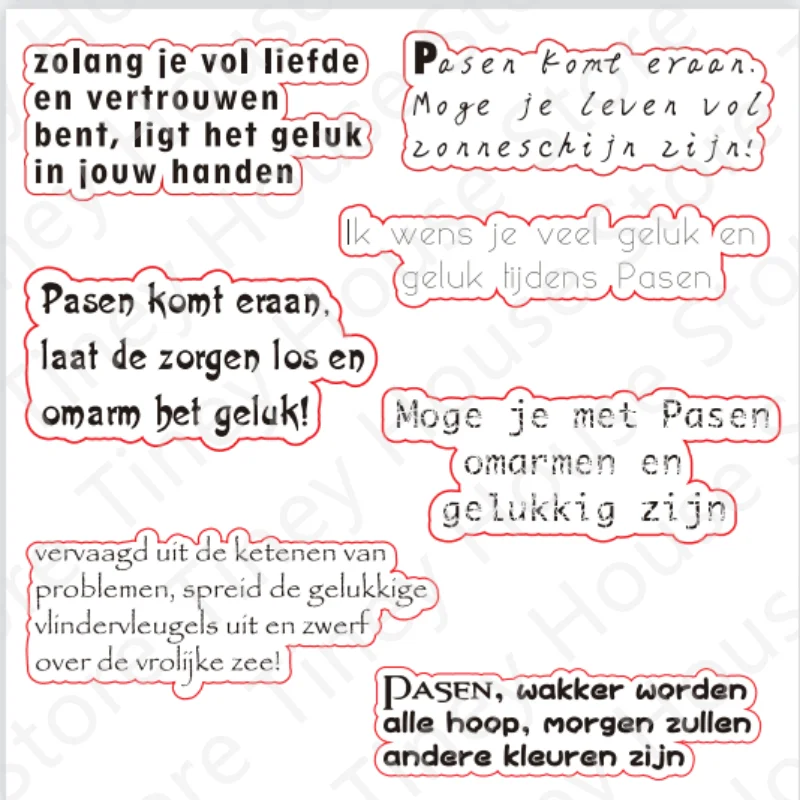 zolang je vol liefde
en vertrouwen
bent, ligt het geluk
in jouw handen
Pasen komt eraan.
Moge je leven vol
zonneschijn zijn!
Ik wens je veel geluk en
geluk tijdens Pasen.
Pasen komt eraan,
laat de zorgen los en
omarm het geluk!
Moge je met Pasen
omarmen en
gelukkig zijn
vervaagd uit de ketenen van
problemen, spreid de gelukkige
vlindervleugels uit en zwerf
over de vrolijke zee!
PASEN, wakker worden
alle hoop, morgen zullen
andere kleuren zijn
Tiney House Store